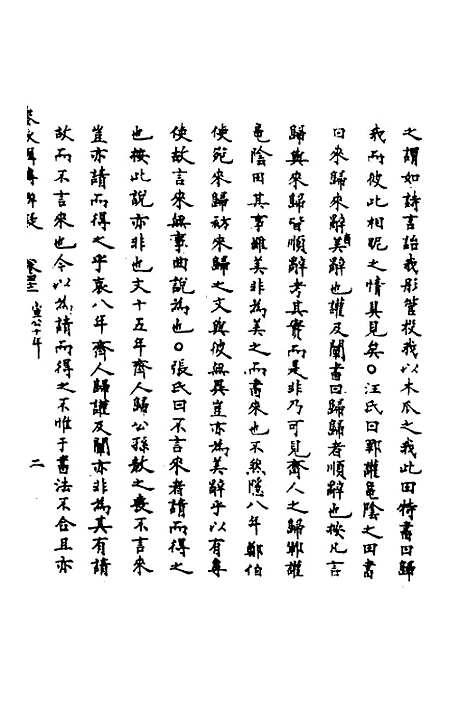 之謂如詩言詒我彤管投我以木瓜之我此田特書曰歸
我而彼此相昵之情具見矣○汪氏曰鄆讙龜陰之田書
曰來歸來辭美辭也讙及闡書曰歸歸者順辭也按凡言
歸與來歸皆順辭考其實而是非乃可見齊人之歸鄆讙
龜陰田其事雖美非為美之而書來也不然隱八年鄭伯
使宛來歸祊來歸之文與彼無異豈亦為美辭乎以有專
使故言來無事曲說為也○張氏曰不言來者請而得之
也按此說亦非也文十五年齊人歸公孫敖之喪不言來
豈亦請而得之乎哀八年齊人歸讙及闡亦非為其有請
故而不言來也今以為請而得之不惟于書法不合且亦
春秋 宣公十年 二